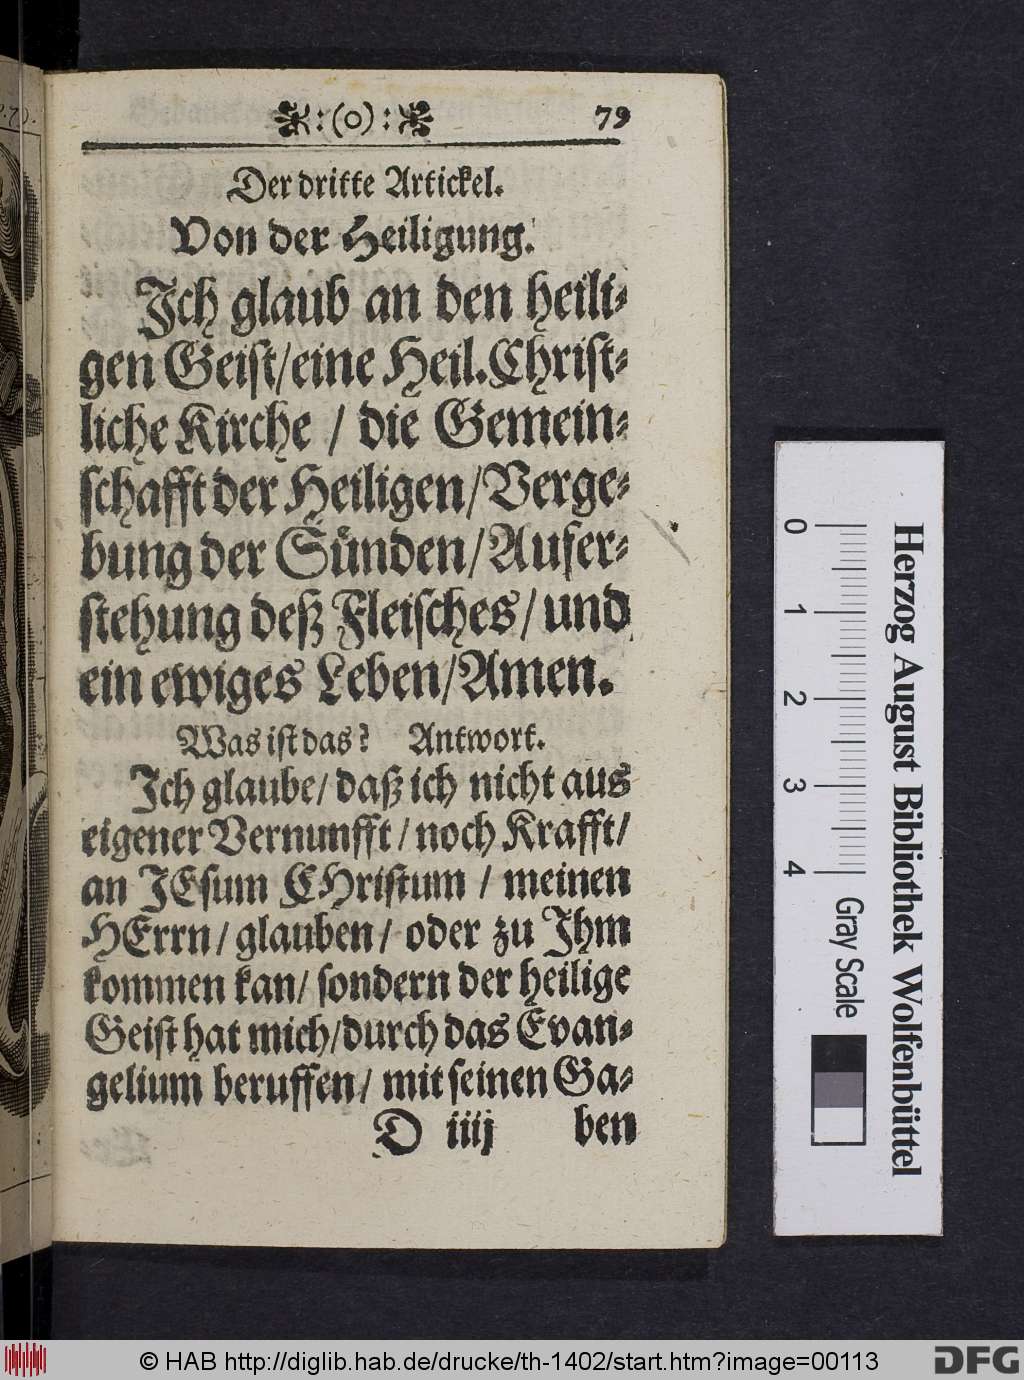 :(o): 79
Der dritte Artickel.
Von der Heiligung.
Ich glaub an den heili-
gen Geist/eine Heil. Christ-
liche Kirche / die Gemein-
schafft der Heiligen/Verge-
bung der Sünden/Aufer-
stehung deß Fleisches/und
ein ewiges Leben/Amen.
Was ist das? Antwort.
Ich glaube/ daß ich nicht aus
eigener Vernunfft/noch Krafft/
an JEsum CHristum / meinen
HErrn/ glauben/ oder zu Ihm
kommen kan/ sondern der heilige
Geist hat mich/durch das Evan-
gelium beruffen/ mit seinen Ga-
D iiij ben
Herzog August Bibliothek Wolfenbüttel
0 1 2 3 4 Gray Scale
© HAB http://diglib.hab.de/drucke/th-1402/start.htm?image=00113
DFG